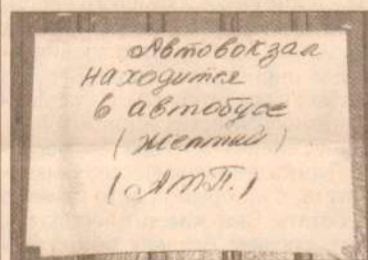 Автовокзал
находится
в автобусе
(желтый)
(АТП.)